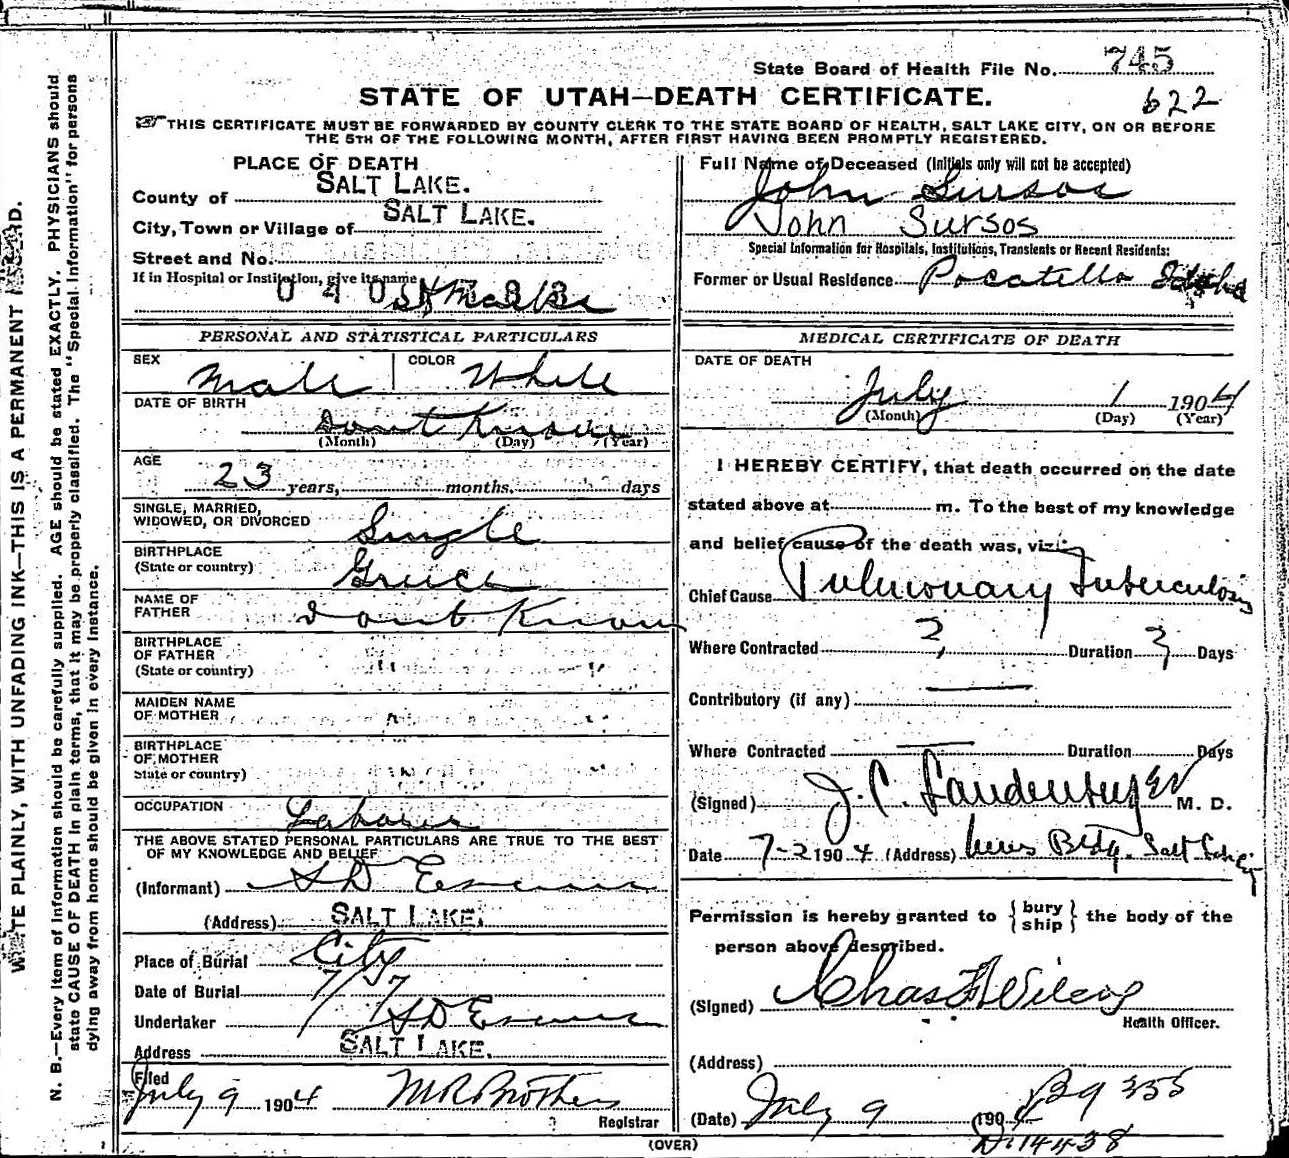 State Board of Health File No. 745
622
STATE OF UTAH—DEATH CERTIFICATE.
THIS CERTIFICATE MUST BE FORWARDED BY COUNTY CLERK TO THE STATE BOARD OF HEALTH, SALT LAKE CITY, ON OR BEFORE
THE 5TH OF THE FOLLOWING MONTH, AFTER FIRST HAVING BEEN PROMPTLY REGISTERED.
WRITE PLAINLY, WITH UNFADING INK—THIS IS A PERMANENT RECORD.
N. B.—Every item of information should be carefully supplied. AGE should be stated EXACTLY. PHYSICIANS should
state CAUSE OF DEATH in plain terms, that it may be properly classified. The "Special Information" for persons
dying away from home should be given in every instance.
PLACE OF DEATH
County of SALT LAKE.
City, Town or Village of SALT LAKE.
Street and No.
If in Hospital or Institution, give its name
St Marks
PERSONAL AND STATISTICAL PARTICULARS
SEX Male COLOR White
DATE OF BIRTH
Dont Know
(Month) (Day) (Year)
AGE
23 years, months, days
SINGLE, MARRIED,
WIDOWED, OR DIVORCED Single
BIRTHPLACE
(State or country) Greece
NAME OF
FATHER Dont Know
BIRTHPLACE
OF FATHER
(State or country) " "
MAIDEN NAME
OF MOTHER " "
BIRTHPLACE
OF MOTHER
State or country) " "
OCCUPATION Laborer
THE ABOVE STATED PERSONAL PARTICULARS ARE TRUE TO THE BEST
OF MY KNOWLEDGE AND BELIEF
(Informant) S D Evans
(Address) SALT LAKE.
Place of Burial City
Date of Burial 7/7
Undertaker S D Evans
Address SALT LAKE.
Filed
July 9 1904 M R Brothers
Registrar
Full Name of Deceased (Initials only will not be accepted)
John Sursos
John Sursos
Special Information for Hospitals, Institutions, Transients or Recent Residents:
Former or Usual Residence Pocatello Idaho
MEDICAL CERTIFICATE OF DEATH
DATE OF DEATH
July 1 1904
(Month) (Day) (Year)
I HEREBY CERTIFY, that death occurred on the date
stated above at m. To the best of my knowledge
and belief cause of the death was, viz:
Chief Cause Pulmonary Tuberculosis
Where Contracted ? Duration ? Days
Contributory (if any) —
Where Contracted — Duration Days
(Signed) J. C. Landenberger M. D.
Date 7-2 1904 (Address) News Bldg. Salt Lake City
Permission is hereby granted to { bury ship } the body of the
person above described.
(Signed) Chas F Wilcox
Health Officer.
(Address)
(Date) July 9 1904
B9 355
14438
(OVER)